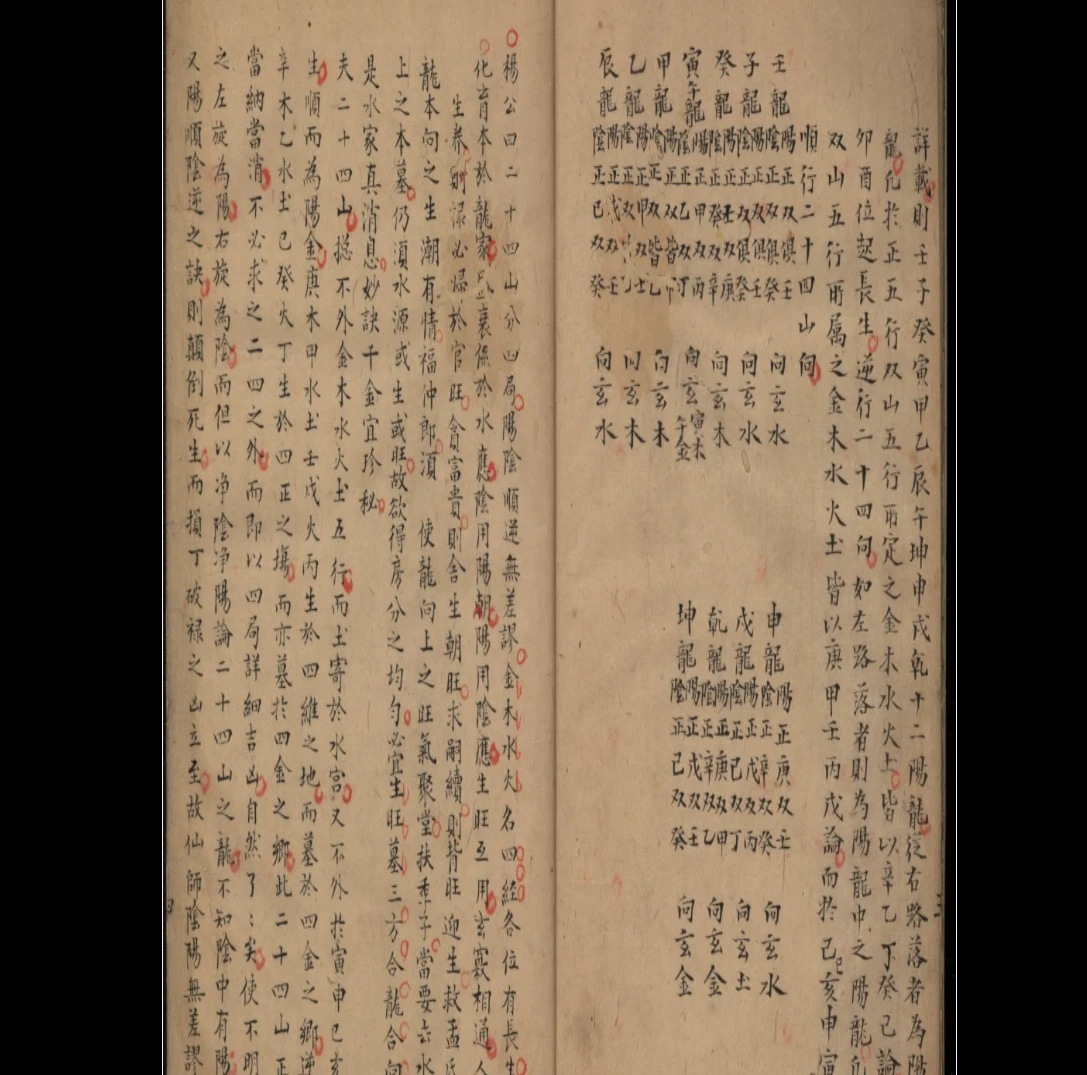 詳載則壬子癸寅甲乙辰午坤申戌乾十二陽龍從右路落者為陽
龍凢於正五行双山五行所定之金木水火土皆以辛乙丁癸己論
卯酉位起長生逆行二十四向如左路落者則為陽龍中之陽龍凢
双山五行所属之金木水火土皆以庚甲壬丙戊論而於己亥申寅
順行二十四山向
壬龍陽正双俱壬陰正双俱癸向玄水
子龍陽正双俱壬陰正双俱癸向玄水
癸龍陽正壬双庚陰正癸双辛向玄木
寅午龍陽正甲双丙陰正乙双丁向玄寅木午金
甲龍陽正双皆甲陰正双皆乙向玄木
乙龍陽正甲双陰正双向玄木
辰龍陽正戊双壬陰正己双癸向玄水
申龍陽正庚双壬陰正辛双癸向玄水
戌龍陽正戊双丙陰正己双丁向玄土
乾龍陽正庚双甲陰正辛双乙向玄金
坤龍陽正戊双壬陰正己双癸向玄金
楊公曰二十四山分四局陽陰順逆無差謬金木水火名四経各位有長生
化育本於龍家衰係於水應陰用陽朝陽用陰應生旺互用玄竅相通人
生養財禄必㷌於官旺貪富貴則舍生朝旺求嗣續則背旺迎生救孟氏
龍本向之生潮有情福仲郎湏使龍向上之旺氣聚堂扶季子當要六水
上之本墓仍湏水源或生或旺故欲得房分之均勻必宜生旺墓三方合龍合向
是水家真消息妙訣千金宜珍秘
夫二十四山捴不外金木水火土五行而土寄於水宮又不外於寅申巳亥
生順而為陽金庚木甲水土壬戊火丙生於四維之地而墓於四金之鄉逆
辛木乙水土己癸火丁生於四正之塲而亦墓於四金之鄉此二十四山正
當納當消不必求之二四之外而即以四局詳細吉凶自然了〻矣使不明
之左旋為陽右旋為陰而但以净陰净陽論二十四山之龍不知陰中有陽
又陽順陰逆之訣則顛倒死生而損丁破禄之凶立至故仙師陰陽無差謬